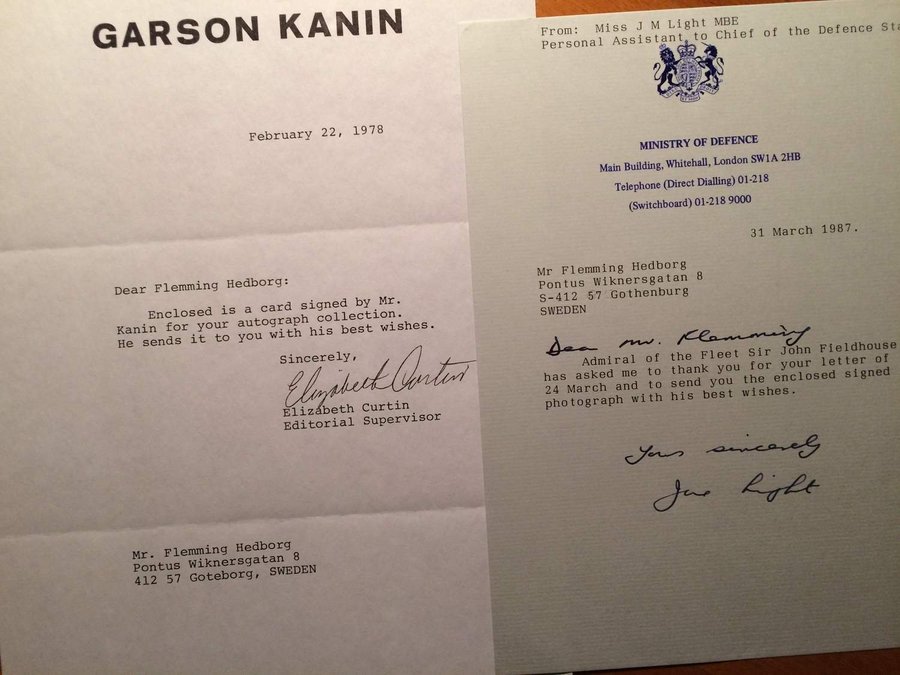 GARSON KANIN
February 22, 1978
Dear Flemming Hedborg:
Enclosed is a card signed by Mr.
Kanin for your autograph collection.
He sends it to you with his best wishes.
Sincerely,
Elizabeth Curtin
Elizabeth Curtin
Editorial Supervisor
Mr. Flemming Hedborg
Pontus Wiknersgatan 8
412 57 Goteborg, SWEDEN
From: Miss J M Light MBE
Personal Assistant to Chief of the Defence Sta
MINISTRY OF DEFENCE
Main Building, Whitehall, London SW1A 2HB
Telephone (Direct Dialling) 01-218
(Switchboard) 01-218 9000
31 March 1987.
Mr Flemming Hedborg
Pontus Wiknersgatan 8
S-412 57 Gothenburg
SWEDEN
Dear Mr. Flemming
Admiral of the Fleet Sir John Fieldhouse
has asked me to thank you for your letter of
24 March and to send you the enclosed signed
photograph with his best wishes.
Yours sincerely
Light